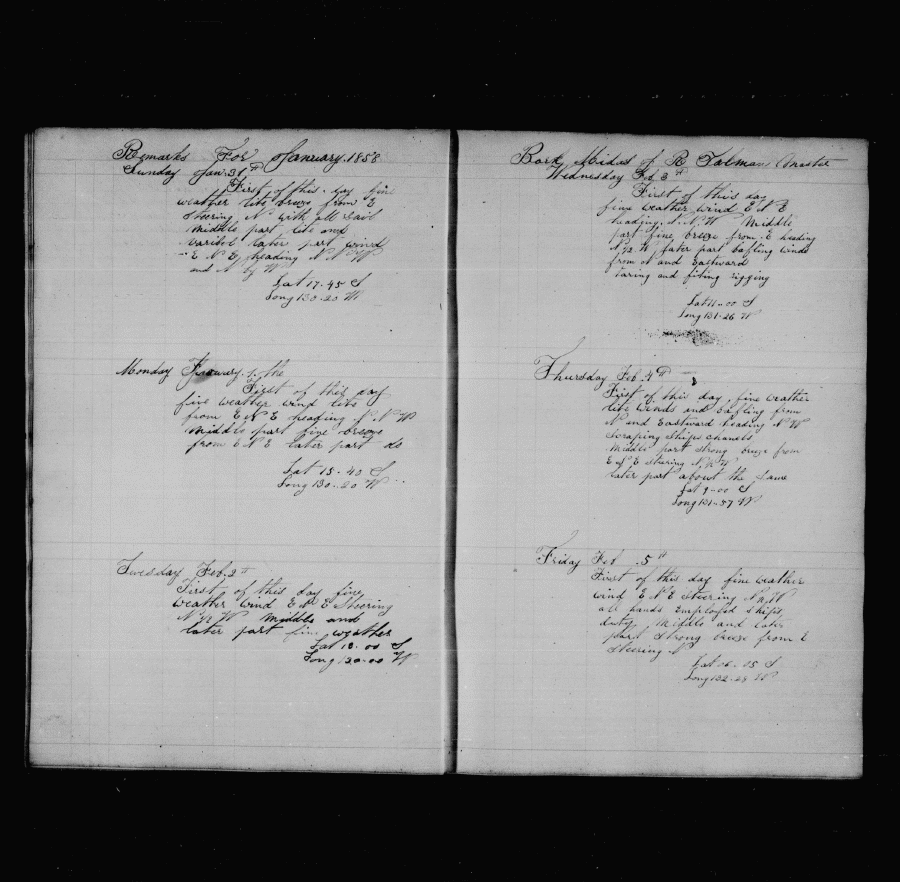 Remarks For January 1858
Sunday Jan. 31th
First of this day fine
weather lite breas from E
steering N with all sail
middle part lite and
later part wind
E N E heading N N W
and N by W
Lat 17-45 S
Long 130-20 W
Monday 1. the
First of this day
fine weather wind lite
from E N E heading N N W
middle part fine breas
from E N E later part do
Lat 15-40 S
Long 130-20 W
Tuesday Feb. 2th
First of this day fine
weather wind E N E Steering
N 1/2 W middle and
later part fine weather
Lat 13-00 S
Long 130-00 W
Bark Midas of B Talman Master
Wednesday Feb 3th
First of this day
fine weather wind E N E
heading N. N. W Middle
part fine breze from E heading
N 1/2 W later part bafling winds
from N and Eastward
taring and fiting rigging
Lat 11-00 S
Long 131-26 W
Thursday Feb. 4th
First of this day fine weather
lite winds and bafling from
N and Eastward heading N W
Scraping Ships chanels
Middle part strong breze from
E N E Steering
later part about the same
Lat 9-00 S
Long 131-57 W
Friday Feb. 5th
First of this day fine weather
wind E N E Steering
all hands employed ships
duty Middle and later
part strong breze from E
Steering N
Lat 06-05 S
Long 132-28 W